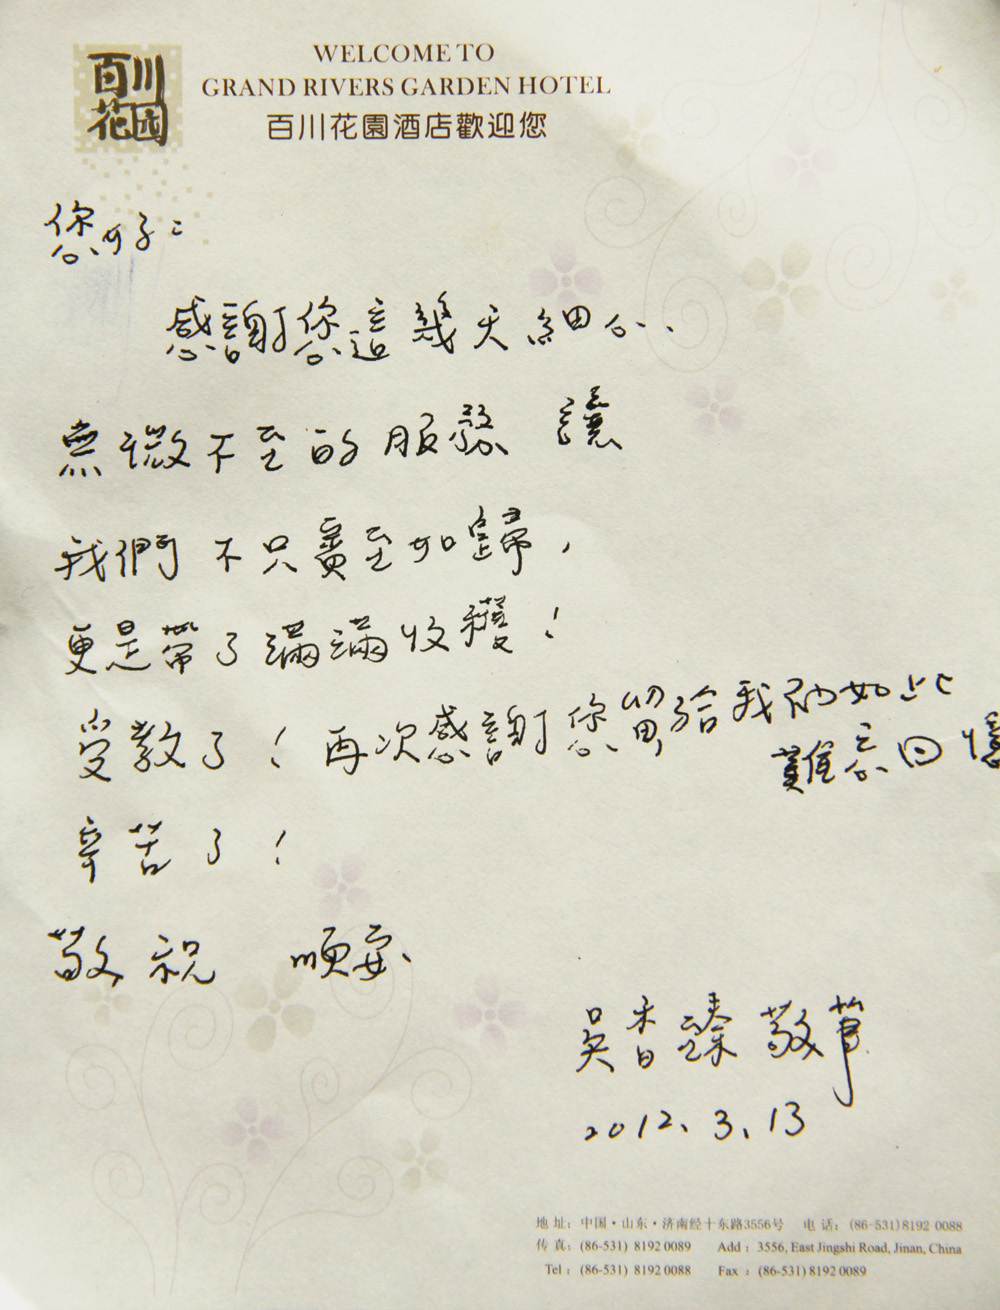 百川
花园
WELCOME TO
GRAND RIVERS GARDEN HOTEL
百川花園酒店歡迎您
您好：
感謝您這幾天細心、
無微不至的服務 讓
我們不只賓至如歸，
更是帶了滿滿收穫！
受教了！再次感謝您留給我們如此
難忘回憶
辛苦了！
敬祝 順安
吳香臻 敬筆
2012.3.13
地 址：中国·山东·济南经十东路3556号 电 话：(86-531) 8192 0088
传 真：(86-531) 8192 0089 Add：3556, East Jingshi Road, Jinan, China
Tel：(86-531) 8192 0088 Fax：(86-531) 8192 0089